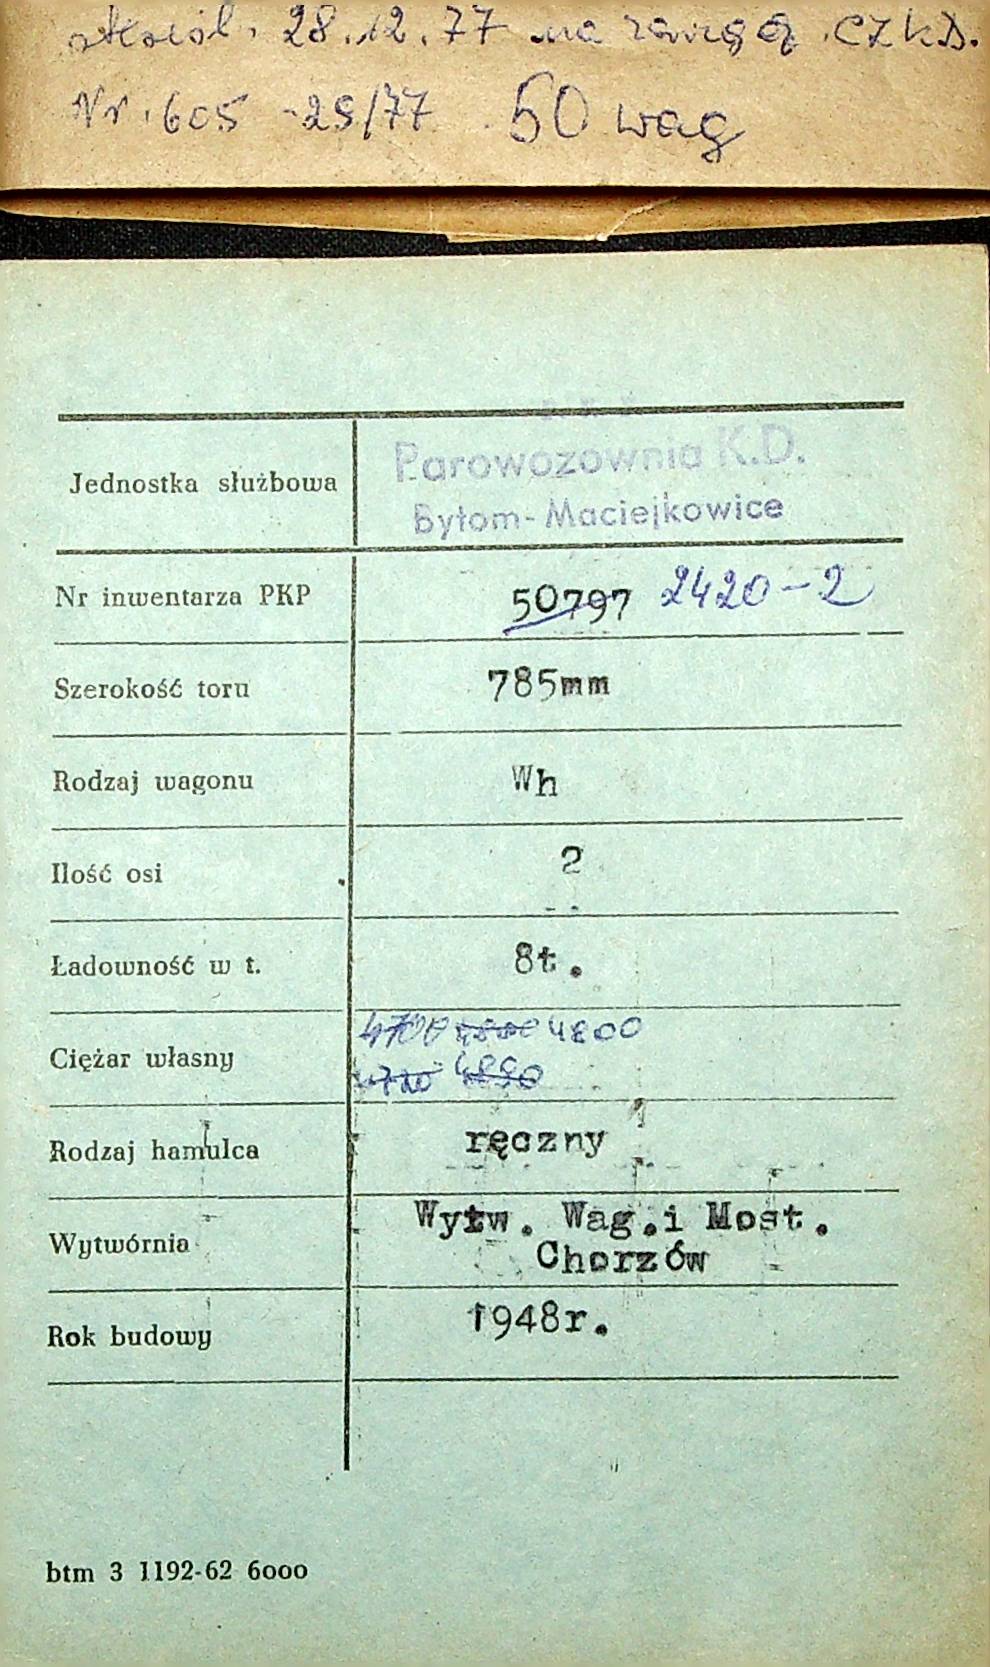 28.12.77 na CZKD.
Nr. 605 -29/77 50 wag
P K P
Parowozownia K.D.
Bytom-Maciejkowice
Jednostka służbowa
Nr inwentarza PKP 50797 2420-2
Szerokość toru 785mm
Rodzaj wagonu Wh
Ilość osi 2
Ładowność w t. 8t.
4700 4800
Ciężar własny
4720 4890
Rodzaj hamulca ręczny
Wytw. Wag.i Most.
Wytwórnia
Chorzów
Rok budowy 1948r.
btm 3 1192-62 6000